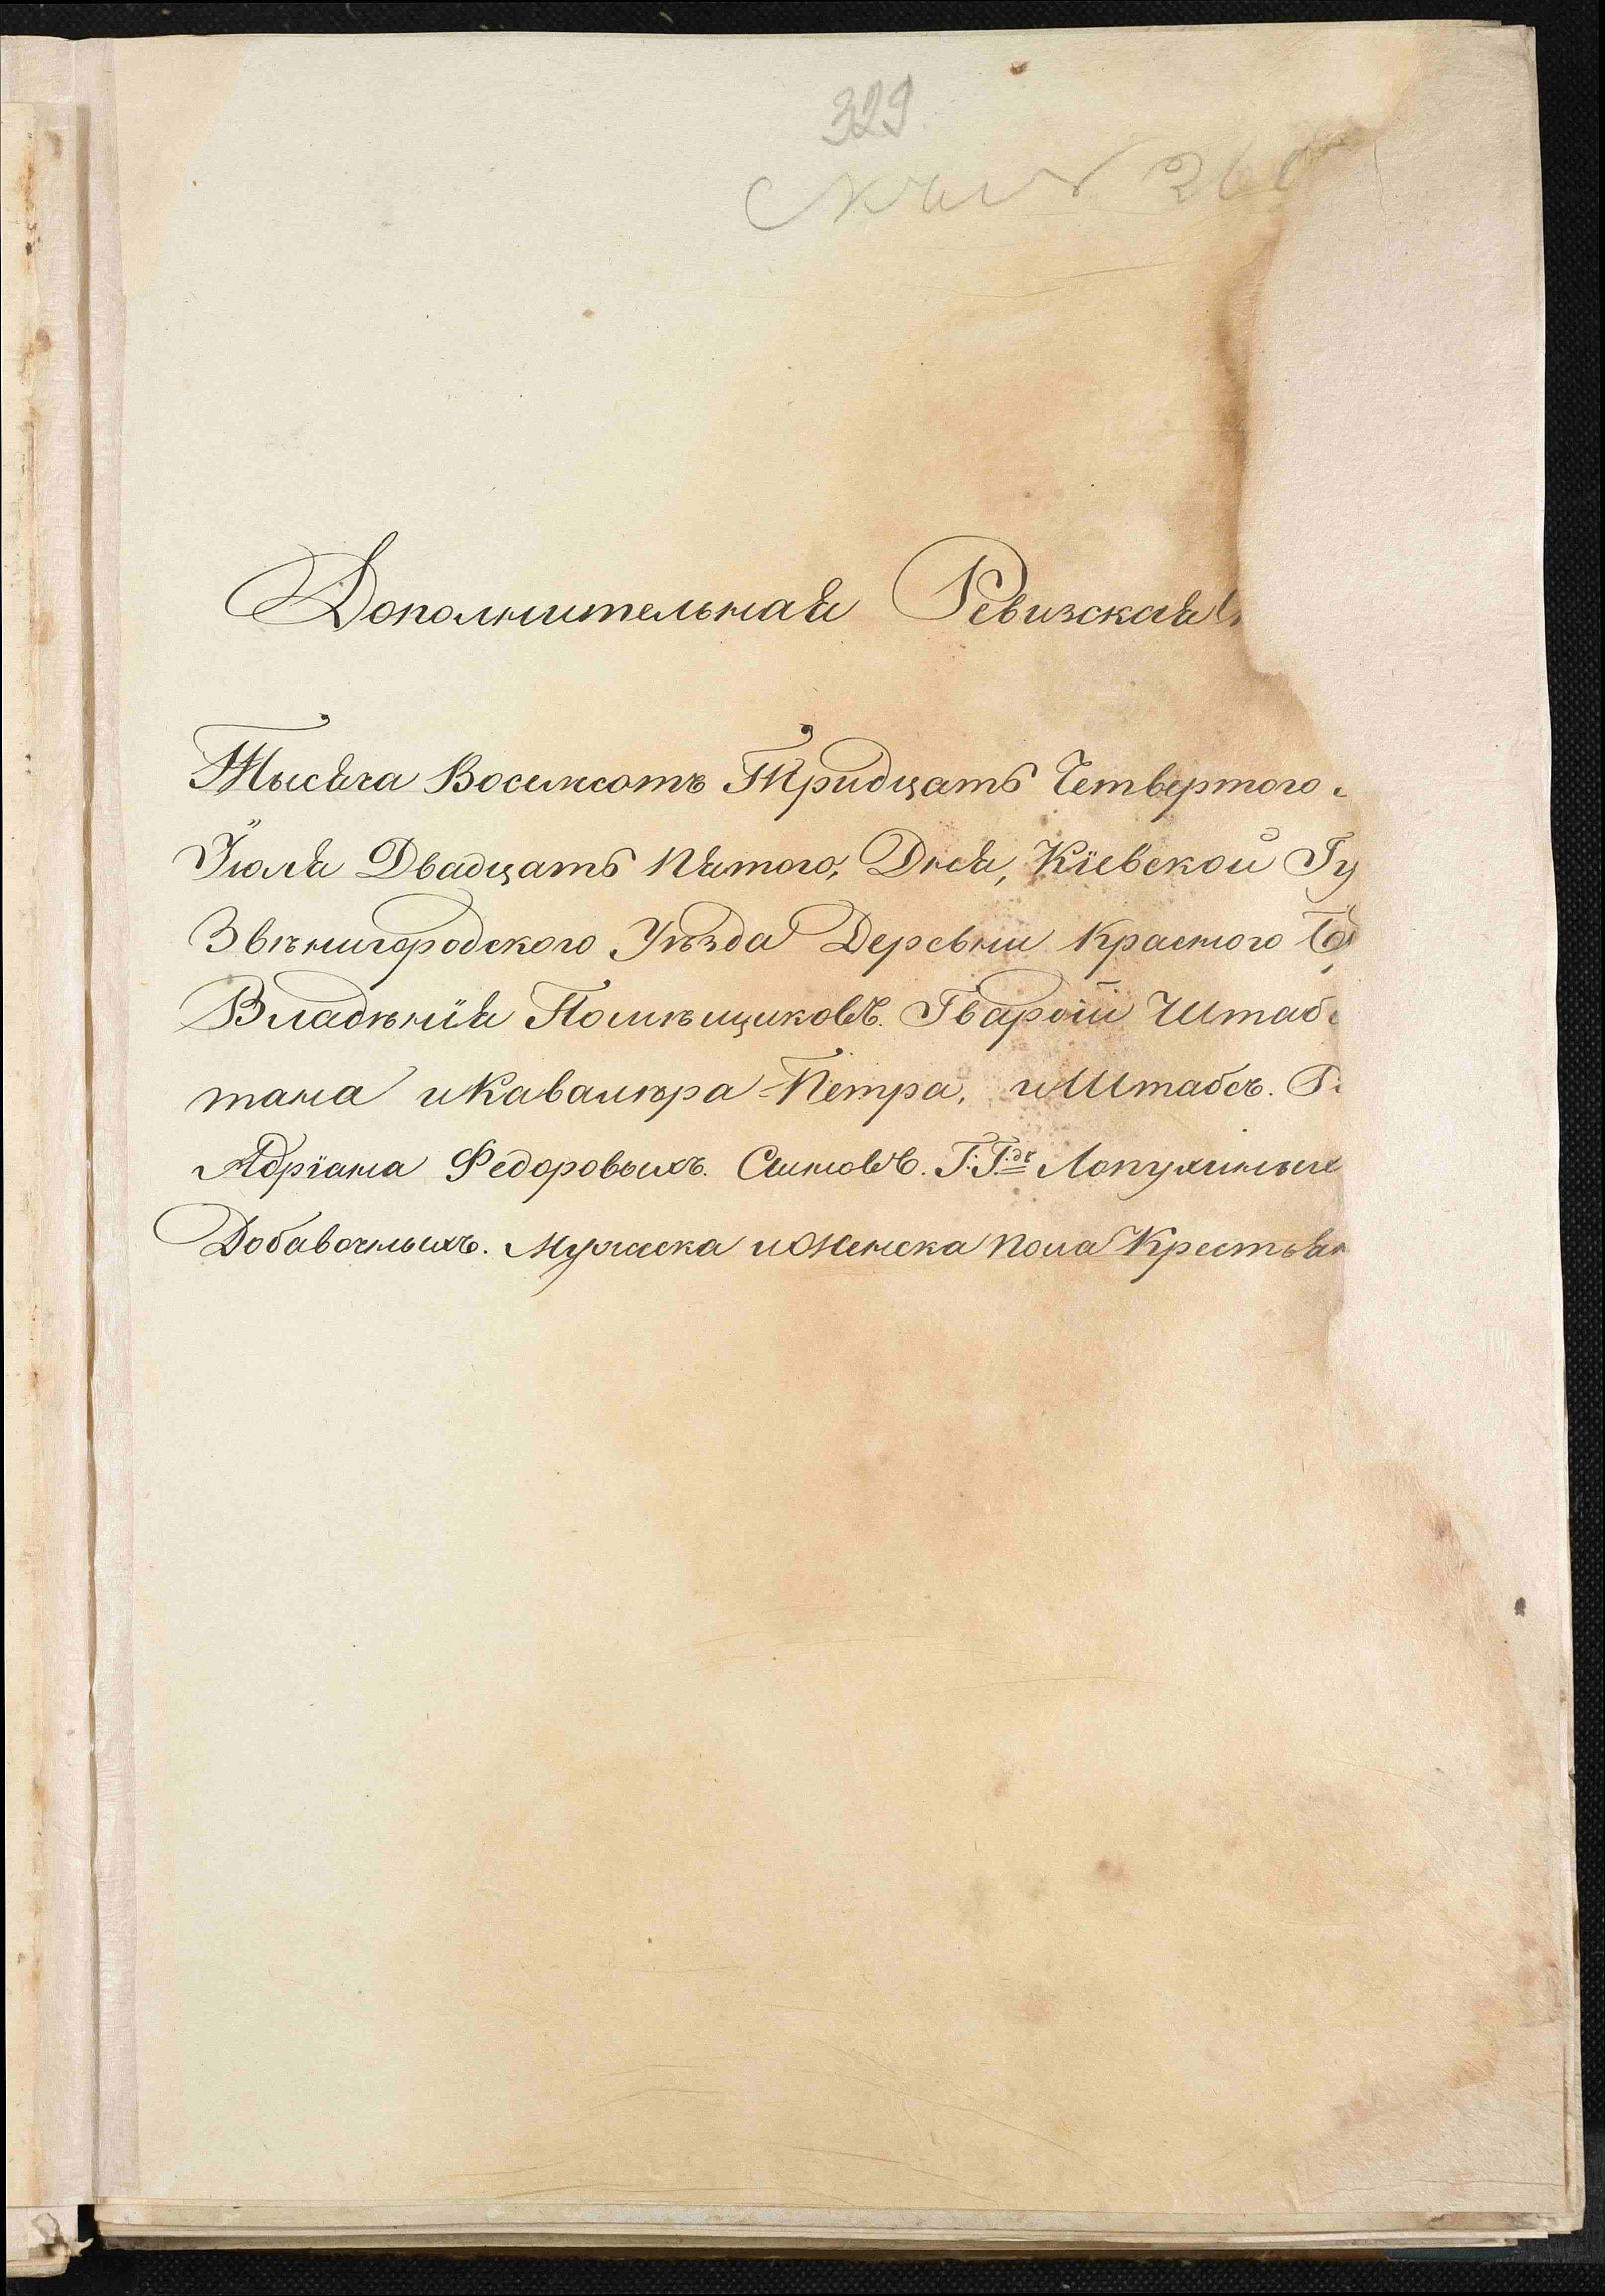 329.
Дополнительная Ревизская
Тысяча Восемсотъ Тридцать Четвертого
Іюля Двадцать Пятого, Дня, Кіевской Гу
Звѣнигородского Уѣзда Деревни Красного
Владѣнія Помѣщиковъ. Гвардіи Штаб
тана и Кавалѣра Петра, и Штабсъ. Р
Адріана Федоровыхъ. Сыновъ. Г:Г:дъ Лопухиных
Добавочныхъ. Мужеска и Женска Пола Крестьян